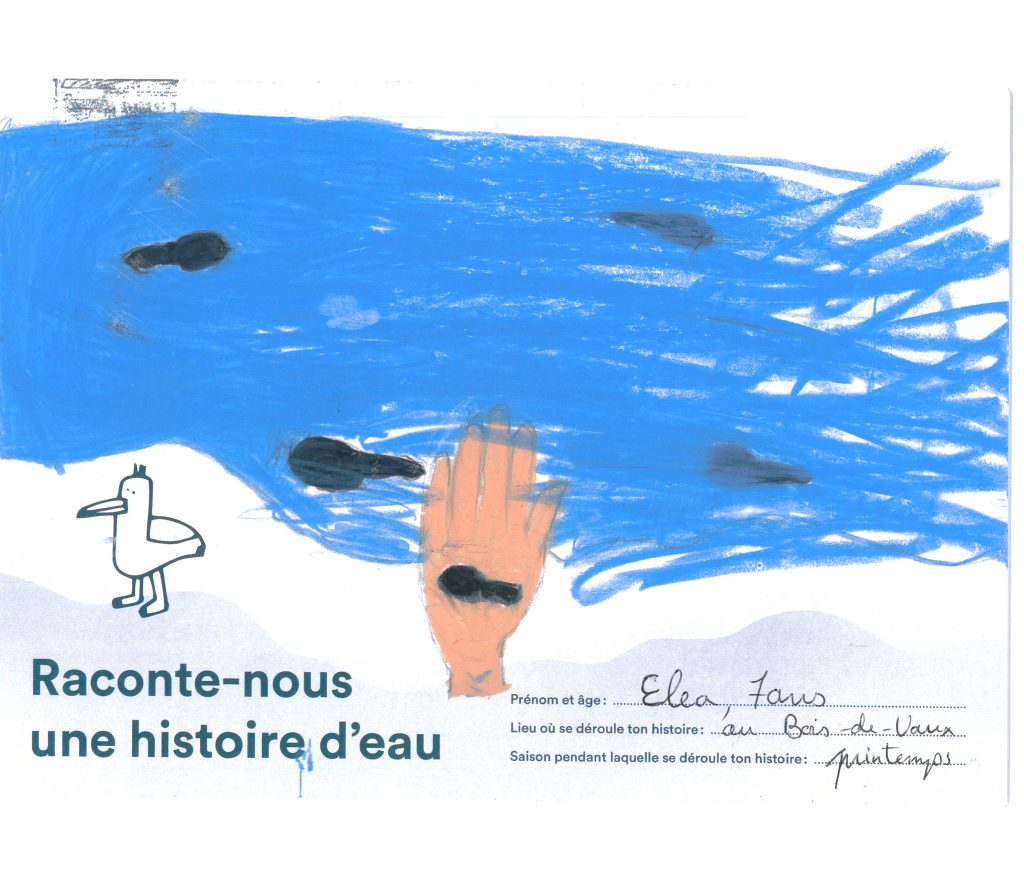 Raconte-nous
une histoire d'eau
Prénom et âge : Elea, 7 ans
Lieu où se déroule ton histoire : au Bois-de-Vaux
Saison pendant laquelle se déroule ton histoire : printemps